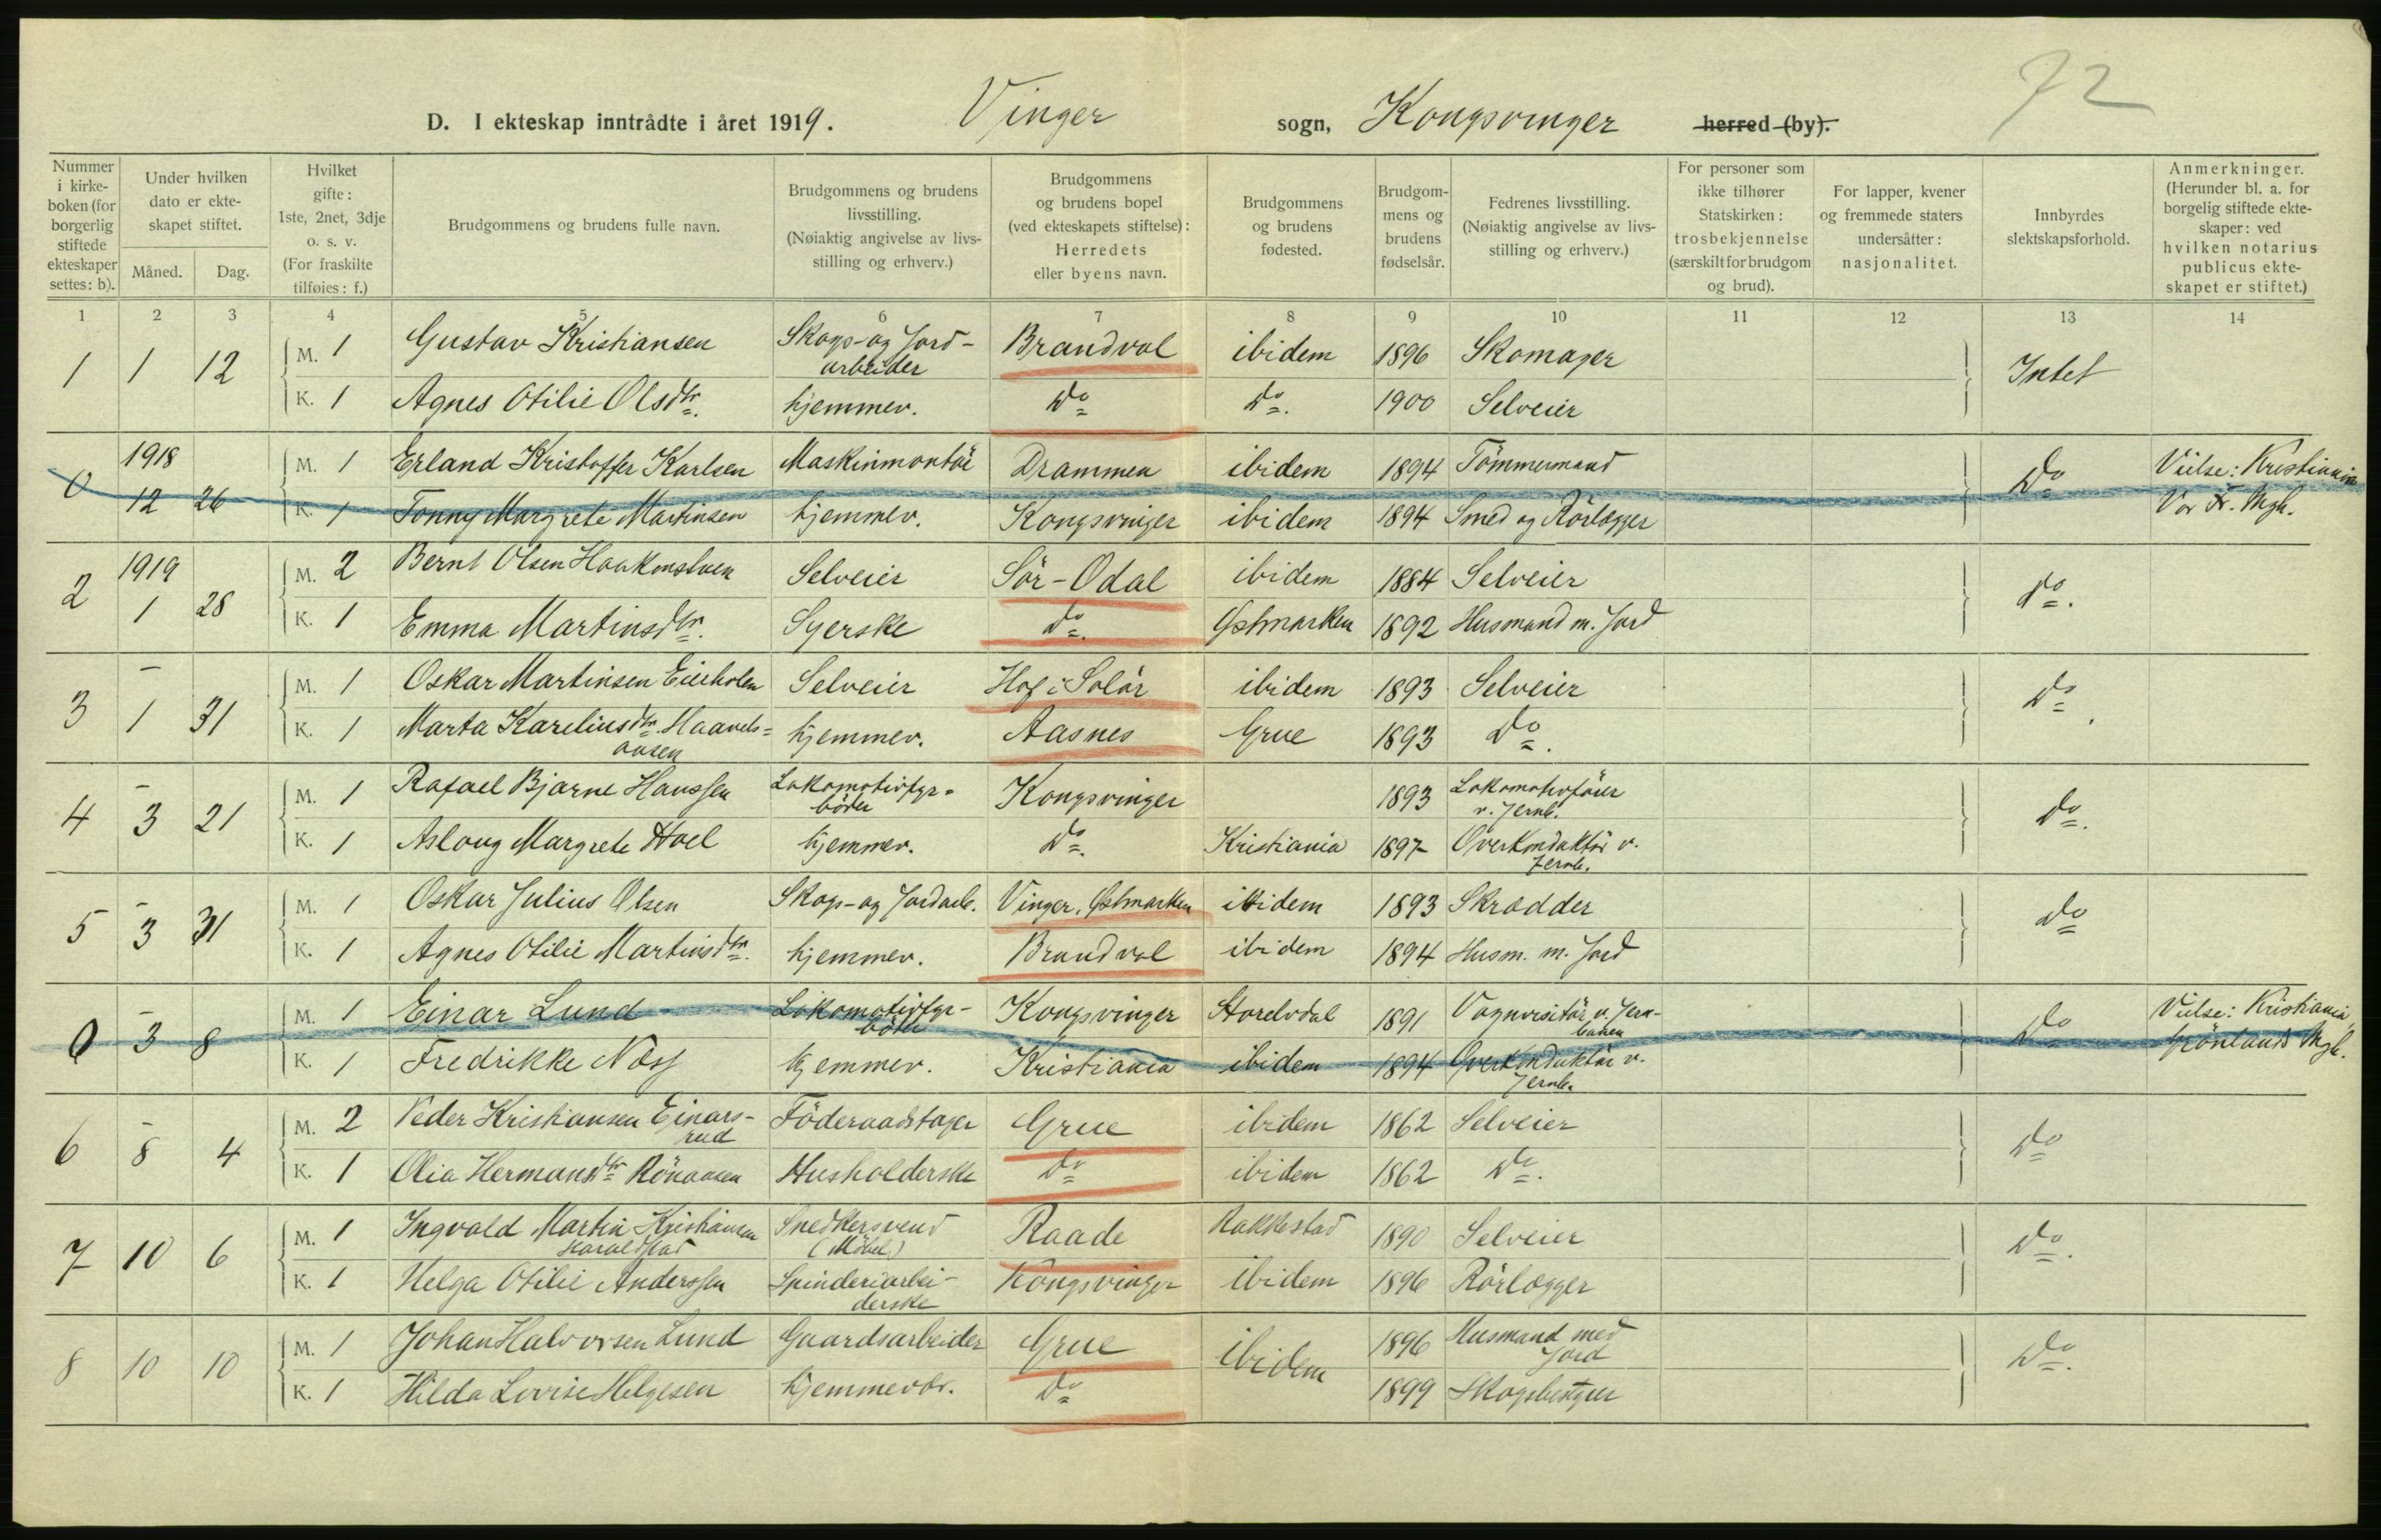 72
D. I ekteskap inntrådte i året 1919. Vinger sogn, Kongsvinger herred (by).
Nummer i kirke-boken (for borgerlig stiftede ekteskaper settes: b).
Under hvilken dato er ekte-skapet stiftet.
Måned. Dag.
Hvilket gifte: 1ste, 2net, 3dje o. s. v. (For fraskilte tilføies: f.)
Brudgommens og brudens fulle navn.
Brudgommens og brudens livsstilling. (Nøiaktig angivelse av livs-stilling og erhverv.)
Brudgommens og brudens bopel (ved ekteskapets stiftelse): Herredets eller byens navn.
Brudgommens og brudens fødested.
Brudgom-mens og brudens fødselsår.
Fedrenes livsstilling. (Nøiaktig angivelse av livs-stilling og erhverv.)
For personer som ikke tilhører Statskirken: trosbekjennelse (særskilt for brudgom og brud).
For lapper, kvener og fremmede staters undersåtter: nasjonalitet.
Innbyrdes slektskapsforhold.
Anmerkninger. (Herunder bl. a. for borgelig stiftede ekte-skaper: ved hvilken notarius publicus ekte-skapet er stiftet.)
1 2 3 4 5 6 7 8 9 10 11 12 13 14
1 1 12 M. 1 Gustav Kristiansen Skogs- og Jord-arbeider Brandval ibidem 1896 Skomager Intet
K. 1 Agnes Otilie Olsdtr. hjemmev. Do Do. 1900 Selveier
0 1918 12 26 M. 1 Erland Kristoffer Karlsen Maskinmontör Drammen ibidem 1894 Tömmermand Do Vielse: Kristiania
K. 1 Tonny Margrete Martinsen hjemmev. Kongsvinger ibidem 1894 Smed og Rörlægger Vor Fr. Mgh.
2 1919 1 28 M. 2 Bernt Olsen Selveier Sör-Odal ibidem 1884 Selveier do.
K. 1 Emma Martinsdtr. Syerske do. Østmarken 1892 Husmand m. Jord
3 - 1 31 M. 1 Oskar Martinsen Selveier Hof i Solör ibidem 1893 Selveier Do.
K. 1 Marta Kareliusdtr. Haavels=aasen hjemmev. Aasnes Grue 1893 Do.
4 - 3 21 M. 1 Rafael Bjarne Hanssen Lokomotivfyr=böter Kongsvinger 1893 Lokomotivförer v. Jernb. do.
K. 1 Aslaug Margrete Hoel hjemmev. Do. Kristiania 1897 Overkonduktör v. Jernb.
5 - 3 31 M. 1 Oskar Julius Olsen Skogs- og Jordarb. Vinger, Østmarken ibidem 1893 Skrædder do
K. 1 Agnes Otilie Martinsdtr. hjemmev. Brandval ibidem 1894 Husm. m. Jord
0 - 3 8 M. 1 Einar Lund Lokomotivfyr-böter Kongsvinger Storelvdal 1891 Vognvisitör v. Jern-banen Do Vielse: Kristiania
K. 1 Fredrikke Næss hjemmev. Kristiania ibidem 1894 Overkonduktör v. Jernb. Grönlands Mgh.
6 - 8 4 M. 2 Peder Kristiansen Einars-rud Föderaadstager Grue ibidem 1862 Selveier do
K. 1 Olia Hermansdtr Rönaasen Husholderske Do ibidem 1862 Do.
7 10 6 M. 1 Ingvald Martin Kristiansen Haraldstad Snedkersvend (Möbel) Raade Rakkestad 1890 Selveier Do.
K. 1 Helga Otilie Anderssen Spinderiarbei-derske Kongsvinger ibidem 1896 Rörlægger
8 10 10 M. 1 Johan Halvorsen Lund Gaardsarbeider Grue ibidem 1896 Husmand med Jord Do.
K. 1 Hilda Lovise Helgesen hjemmev. Do 1899 Skogbestyrer